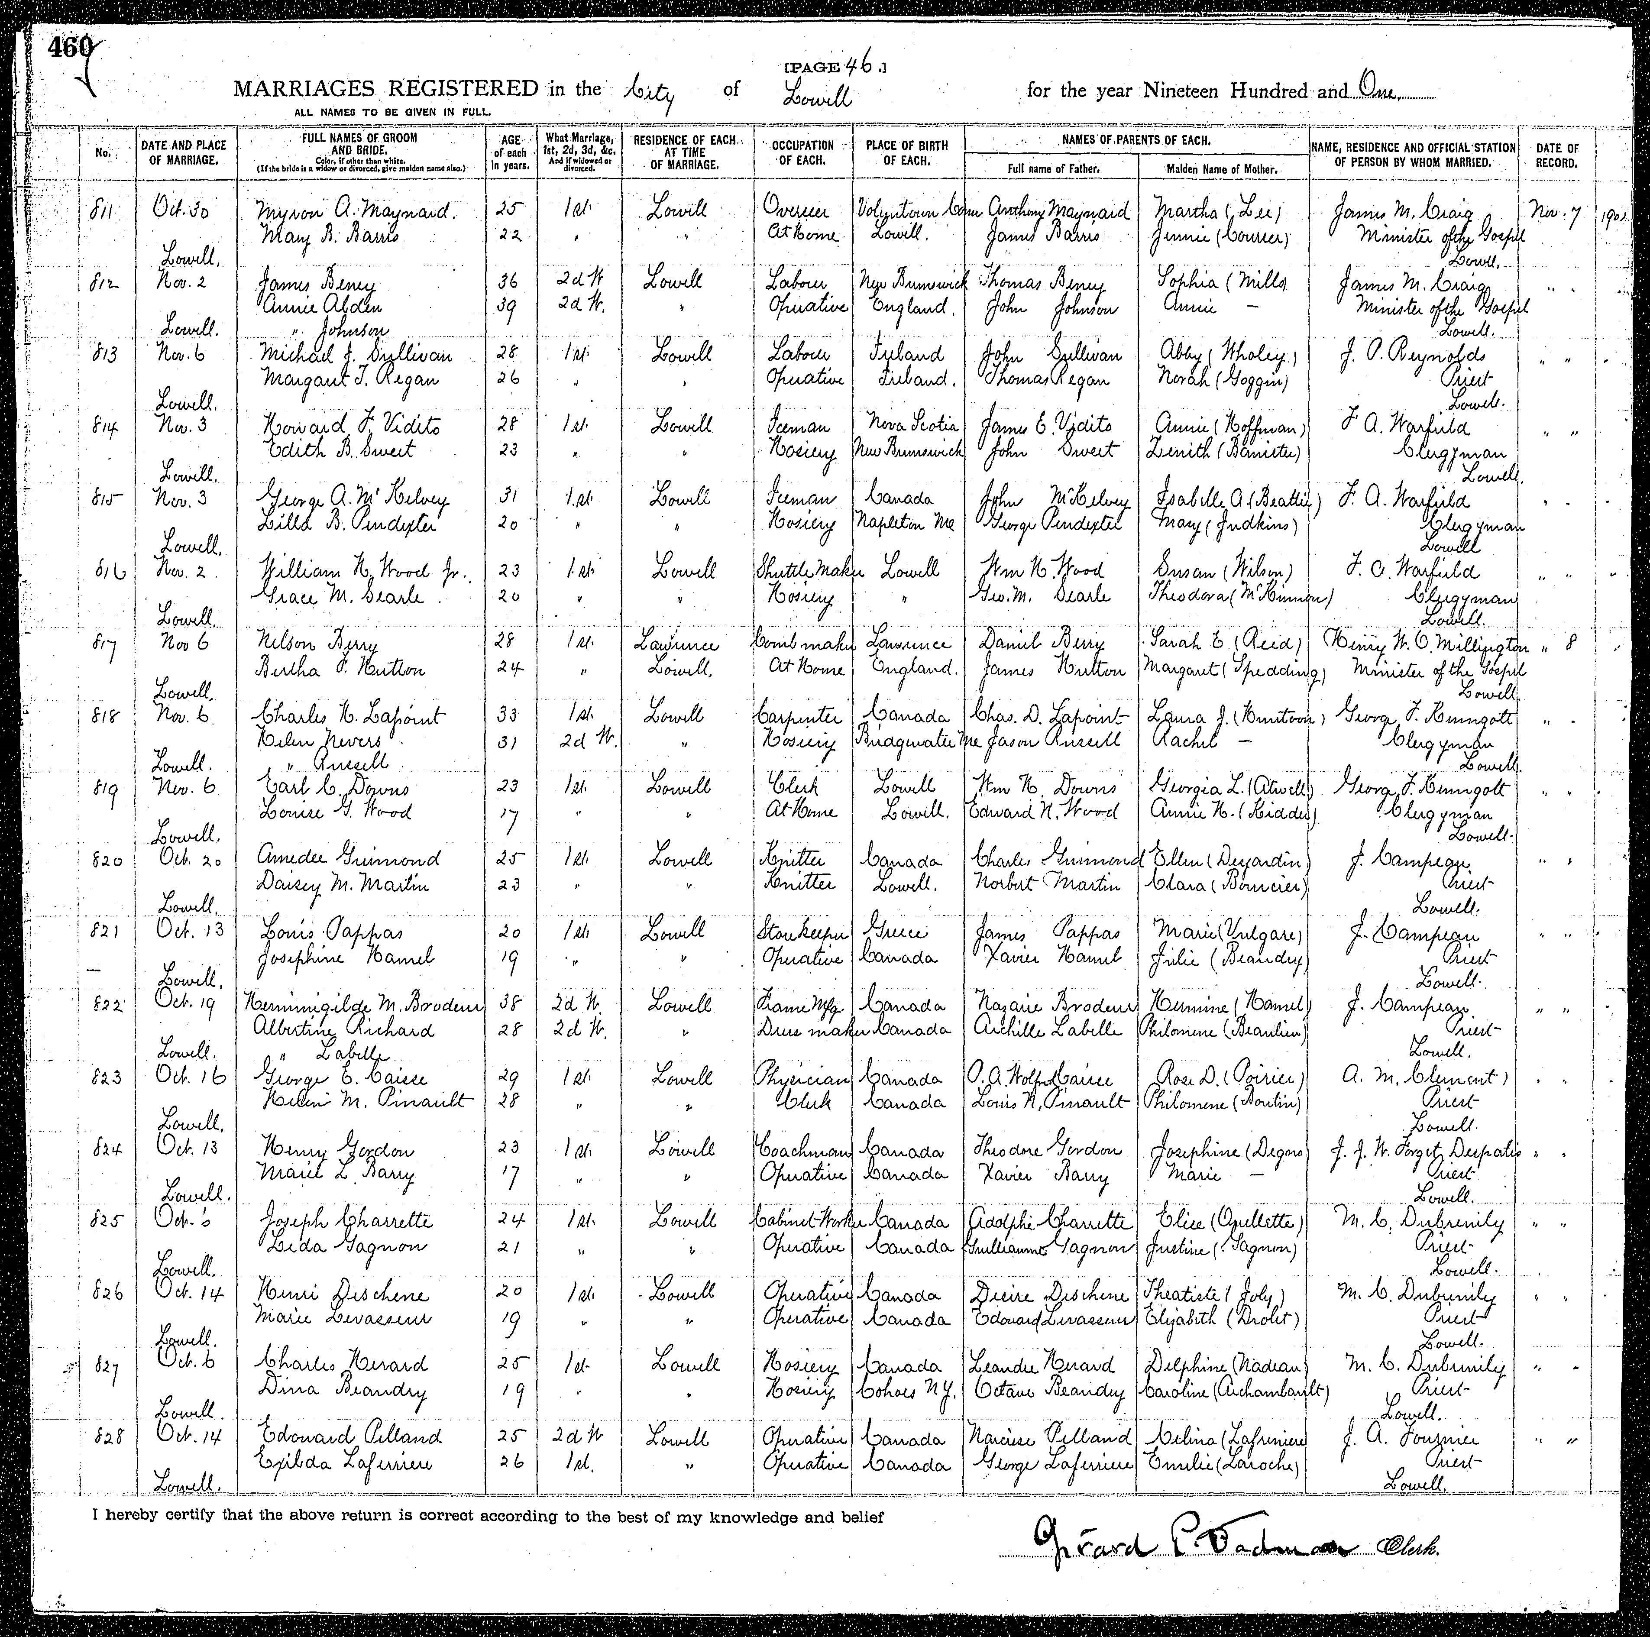 460
[PAGE 46.]
MARRIAGES REGISTERED in the City of Lowell for the year Nineteen Hundred and One.
ALL NAMES TO BE GIVEN IN FULL.
No. DATE AND PLACE OF MARRIAGE. FULL NAMES OF GROOM AND BRIDE. Color, if other than white. (If the bride is a widow or divorced, give maiden name also.) AGE of each in years. What Marriage, 1st, 2d, 3d, &c. And if widowed or divorced. RESIDENCE OF EACH AT TIME OF MARRIAGE. OCCUPATION OF EACH. PLACE OF BIRTH OF EACH. NAMES OF PARENTS OF EACH. Full name of Father. Maiden Name of Mother. NAME, RESIDENCE AND OFFICIAL STATION OF PERSON BY WHOM MARRIED. DATE OF RECORD.
811 Oct. 30 Myron A. Maynard. 25 1st. Lowell Overseer Volyntown Conn Anthony Maynard Martha (Lee) James M. Craig Nov. 7 1901
Mary B. Barris 22 " " At Home Lowell. James Barris Jennie (Courser) Minister of the Gospel
Lowell. Lowell.
812 Nov. 2 James Beney 36 2d W Lowell Laborer New Brunswick Thomas Beney Sophia (Mills) James M. Craig " "
Annie Alden 39 2d W. " Operative England. John Johnson Annie — Minister of the Gospel
Lowell. " Johnson Lowell.
813 Nov. 6 Michael J. Sullivan 28 1st. Lowell Laborer Ireland John Sullivan Abby (Wholey) J. P. Reynolds " "
Margaret T. Regan 26 " " Operative Ireland. Thomas Regan Norah (Goggin) Priest
Lowell. Lowell.
814 Nov. 3 Howard F. Vidito 28 1st. Lowell Iceman Nova Scotia James E. Vidito Annie (Hoffman) F. A. Warfield " "
Edith B. Sweet 23 " " Hosiery New Brunswick John Sweet Zenith (Banister) Clergyman
Lowell. Lowell.
815 Nov. 3 George A. McKelvey 31 1st. Lowell Iceman Canada John McKelvey Isabelle A. (Beattie) F. A. Warfield " "
Lilla B. Pendexter 20 " " Hosiery Napleton Me George Pendexter Mary (Judkins) Clergyman
Lowell. Lowell
816 Nov. 2 William H. Wood Jr. 23 1st. Lowell Shuttle Maker Lowell Wm H. Wood Susan (Wilson) F. A. Warfield " "
Grace M. Searle 20 " " Hosiery " Geo. M. Searle Theodora (McKinnon) Clergyman
Lowell. Lowell.
817 Nov 6 Nelson Berry 28 1st. Lawrence Comb maker Lawrence Daniel Berry Sarah E (Reed) Henry W. O. Millington " 8
Bertha F. Hutton 24 " Lowell. At Home England. James Hutton Margaret (Spedding) Minister of the Gospel
Lowell. Lowell.
818 Nov. 6 Charles H. Lapoint 33 1st. Lowell Carpenter Canada Chas. D. Lapoint Laura J. (Huntoon) George F. Kenngott " "
Helen Nevers 31 2d W. " Hosiery Bridgwater Me Jason Russell Rachel — Clergyman
Lowell. " Russell Lowell.
819 Nov. 6 Earl C. Downs 23 1st. Lowell Clerk Lowell Wm H. Downs Georgia L. (Atwell) George F. Kenngott " "
Louise G. Wood 17 " " At Home Lowell. Edward N. Wood Annie H. (Kidder) Clergyman
Lowell. Lowell.
820 Oct. 20 Amedee Guimond 25 1st. Lowell Knitter Canada Charles Guimond Ellen (Desjardin) J. Campeau " "
Daisey M. Martin 23 " " Knitter Lowell. Norbert Martin Clara (Bourcier) Priest
Lowell. Lowell.
821 Oct. 13 Louis Pappas 20 1st. Lowell Storekeeper Greece James Pappas Marie (Vulgare) J. Campeau " "
Josephine Hamel 19 " " Operative Canada Xavier Hamel Julie (Beaudry) Priest
Lowell. Lowell.
822 Oct. 19 Herminigilde M. Brodeur 38 2d W. Lowell Frame Mfg Canada Nazaire Brodeur Hermine (Hamel) J. Campeau " "
Albertine Richard 28 2d W. " Dress maker Canada Archille Labelle Philomene (Beaulieu) Priest
Lowell. " Labelle Lowell.
823 Oct. 16 George E. Caisse 29 1st. Lowell Physician Canada Caisse Rose D. (Poirier) A. M. Clement " "
Helen M. Pinault 28 " " Clerk Canada Louis N. Pinault Philomene (Boutin) Priest
Lowell. Lowell.
824 Oct. 13 Henry Gordon 23 1st. Lowell Coachman Canada Theodore Gordon Josephine (Degros) J. J. W. Forget Despatis " "
Marie L. Barry 17 " " Operative Canada Xavier Barry Marie — Priest
Lowell. Lowell.
825 Oct. Joseph Charrette 24 1st. Lowell Cabinet Worker Canada Adolphe Charrette Elise (Ouellette) M. C. Dubreuily " "
Leda Gagnon 21 " " Operative Canada Guilliaume Gagnon Justine (Gagnon) Priest
Lowell. Lowell.
826 Oct. 14 Henri Deschene 20 1st. Lowell Operative Canada Desire Deschene Theatiste (Joly) M. C. Dubreuily " "
Marie Levasseur 19 " " Operative Canada Edouard Levasseur Elizabeth (Drolet) Priest
Lowell. Lowell.
827 Oct. 6 Charles Herard 25 1st Lowell Hosiery Canada Leandre Herard Delphine (Nadeau) M. C. Dubreuily " "
Dina Beaudry 19 " " Hosiery Cohoes N.Y. Octave Beaudry Caroline (Archambault) Priest
Lowell. Lowell.
828 Oct. 14 Edouard Pelland 25 2d W Lowell Operative Canada Narcisse Pelland Celina (Lafreniere) J. A. Fournier " "
Exilda Laferriere 26 1st. " Operative Canada George Laferriere Emilie (Laroche) Priest
Lowell. Lowell.
I hereby certify that the above return is correct according to the best of my knowledge and belief
Girard P. Dadman Clerk.